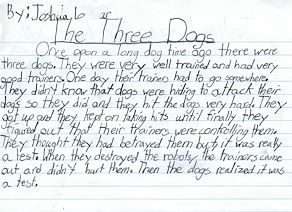 By: Joshua, 6
The Three Dogs
Once opon a long dog time ago there were
three dogs. They were very well trained and had very
good trainers. One day their trainers had to go somewhere.
They didn't know that dogs were hiding to attack their
dogs so they did and they hit the dogs very hard. They
got up and they kept on taking hits until finally they
figured out that their trainers were controlling them.
They thought they had betrayed them but it was really
a test. When they destroyed the robots, the trainers came
out and didn't hurt them. Then the dogs realized it was
a test.